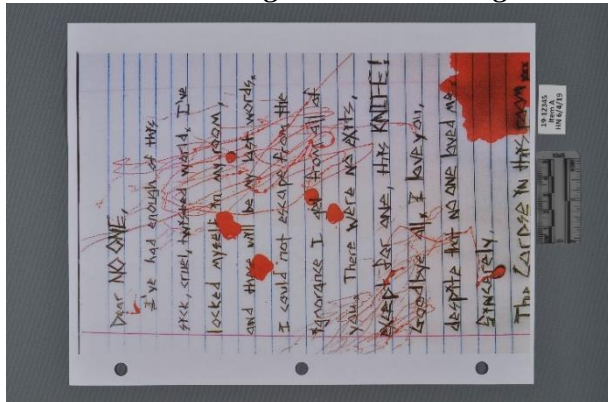 Dear NO ONE,
I've had enough of this
sick, cruel, twisted world. I've
locked myself in my room,
and this will be my last words.
I could not escape from the
ignorance I got from all of
you. There were no exits,
except for one, this KNIFE!
Goodbye all, I love you,
despite that no one loved me.
Sincerely,
The Corpse in this room...
19-12345
Item A
HN 6/4/19